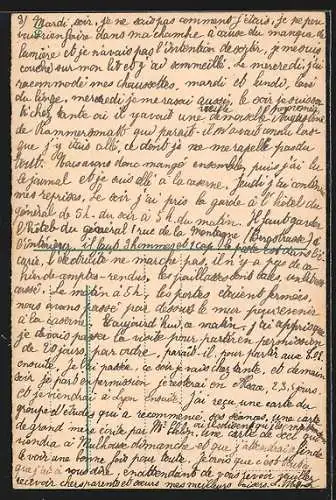 3/ Mardi soir, je ne sais pas comment j'étais, je ne pou
vais rien faire dans ma chambre à cause du manque de
lumière et je n'avais pas l'intention de sortir, je me suis
couché sur mon lit et j'ai sommeillé. Le mercredi j'ai
raccommodé mes chaussettes, mardi et lundi, lavé
du linge, mercredi je me rasai aussi, le soir je suis
chez tante où il y avait une demoiselle
de Rammersmatt qui parait-il m'avait connu lors
que j'y étais allé, ce dont je ne me rappelle pas du
tout. Nous avons donc mangé ensemble, puis j'ai lu
le journal et je suis allé à la caserne. Jeudi j'ai continué
mes reprises, le soir j'ai pris la garde à l'Hôtel du
général de 5h. du soir à 5h du matin. Il faut garder
l'Hôtel du Général 1 rue de la Montagne (Bergstrasse)
il faut 3 hommes et 1 cap. le poste est dans l'é
curie, l'électricité ne marche pas, il n'y a pas de ca
hier de comptes-rendus, les paillasses sont sales,
cassé. Le matin à 5h, les portes étaient fermées,
nous avons passé par dessus le mur pour revenir
à la caserne. Aujourd'hui, ce matin, j'ai appris que
je devais passer la visite pour partir en permission
de 20 jours par ordre, parait-il, pour partir aux
ensuite, je l'ai passée, ce soir je vais chez tante, et demain
soir, je pars en permission, je resterai en Alsace, 2, 3 jours
et je viendrai à Lyon ensuite. J'ai reçu une carte du
groupe d'études qui a recommencé ses séances, une carte
de grand'mère écrite par Mlle
viendra à Mulhouse dimanche et que j'attendrai afin de
le voir une bonne fois pour toute. Je crois que c'est tout
que j'ai à vous dire, en attendant de vous revoir, veuillez
recevoir chers parents et sœurs mes meilleurs baisers.